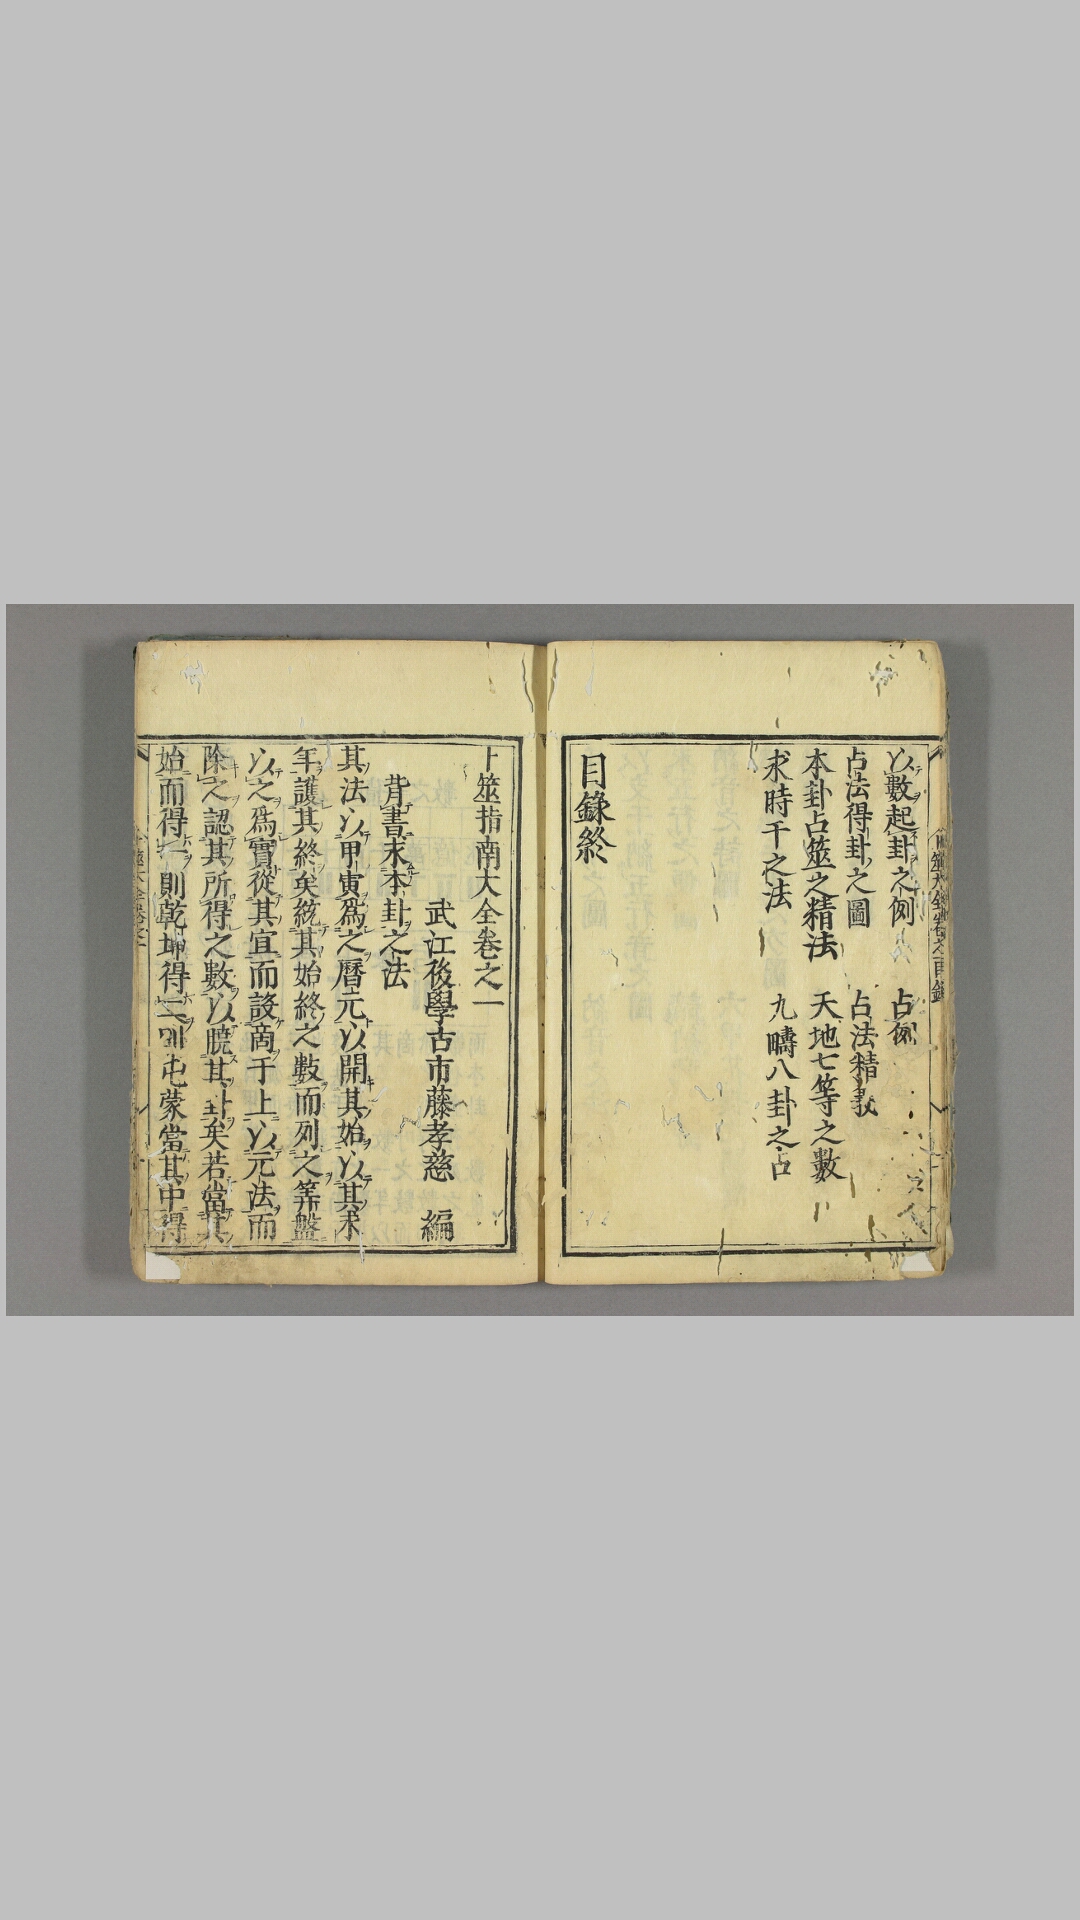 以數起卦之例　占例
占法得卦之圖　占法精義
本卦占筮之精法　天地七等之數
求時干之法　九疇八卦之占
目錄終
卜筮指南大全卷之一
武江後學古市藤孝慈　編
背書求本卦之法
其法以甲寅爲之曆元以開其始以其求
年護其終矣統其始終之數而列之筭盤
以之爲實從其宜而設商于上以元法而
除之認其所得之數以曉其卦矣若當其
始而得一則乾坤得二則屯蒙當其中得